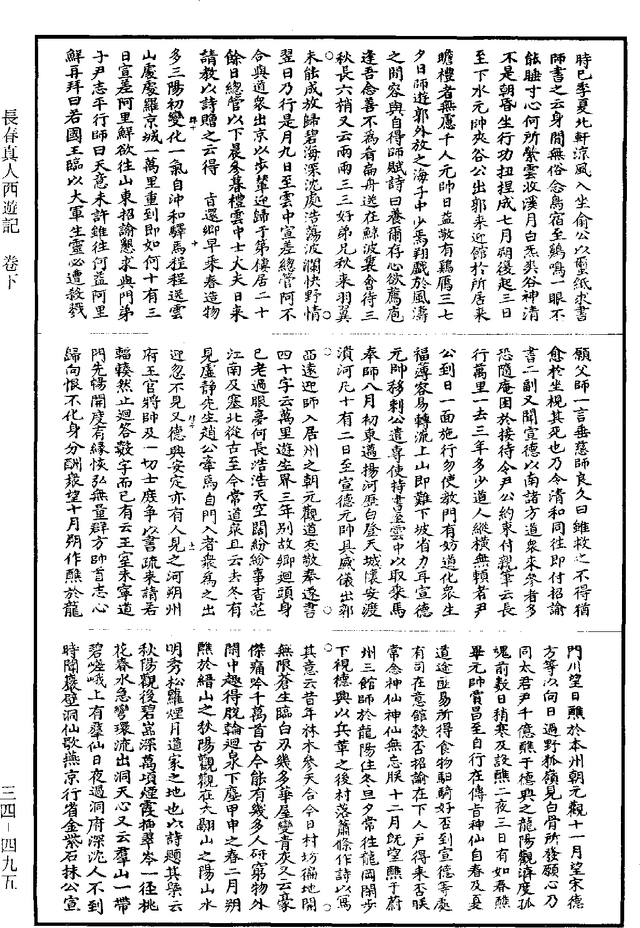 時已季夏北軒涼風入坐俞公以璽紙求書
師書之云身閒無俗念鳥宿至鷄鳴一眼不
能睡寸心何所縈雲收溪月白炁爽谷神清
不是朝昏坐行功扭捏成七月朔復起三日
至下水元帥夾谷公出郭來迎館於所居來
瞻禮者無慮千人元帥日益敬有鷄鴈三七
夕日師遊郭外放之海子中少焉翔戲於風濤
之間容與自得師賦詩曰養爾存心欲薦庖
逢吾念善不為肴扁舟送在鯨波裏會待三
秋長六梢又云兩兩三三好弟兄秋來羽翼
未能成放歸碧海深沈處浩蕩波瀾快野情
翌日乃行是月九日至雲中宣差總管阿不
合與道衆出京以步輦迎歸于第樓居二十
餘日總管以下晨參暮禮雲中士大夫日來
請教以詩贈之云得　旨還鄉早來春造物
多三陽初變化一氣自沖和驛馬程程送雲
山處處羅京城一萬里重到即如何十有三
日宣差阿里鮮欲往山東招諭懇求與門弟
子尹志平行師曰天意未許雖往何益阿里
鮮再拜曰若國王臨以大軍生靈必遭殺戮
願父師一言垂慈師良久曰雖救之不得猶
愈於坐視其死也乃令清和同往即付招諭
書二副又聞宣德以南諸方道衆來參者多
恐隨庵困於接待令尹公約束付親筆云長
行萬里一去三年多少道人縱橫無賴者尹
公到日一面施行勿使教門有妨道化衆生
福薄容易轉流上山即難下坡省力耳宣德
元帥移剌公遣專使持書至雲中以取乘馬
奉師八月初東邁揚河歷白登天城懷安渡
潰河凡十有二日至宣德元帥具威儀出郭
西遠迎師入居州之朝元觀道友敬奉遂書
四十字云萬里遊生界三年別故鄉迴頭身
已老過眼夢何長浩浩天空闊紛紛事杳茫
江南及塞北從古至今常道衆且云去冬有
見虛靜先生趙公牽馬自門入者衆為之出
迎忽不見又德興安定亦有人見之河朔州
府王官將帥及一切士庶爭以書疏來請若
輻輳然止迴答數字而已有云王室未寧道
門先暢開度有緣恢弘無量群方帥首志心
歸向恨不化身分酬衆望十月朔作醮於龍
門川望日醮於本州朝元觀十一月望宋德
方等以向日過野狐嶺見白骨所發願心乃
同太君尹千億醮于德興之龍陽觀濟度孤
魂前數日稍寒及設醮二夜三日有如春醮
畢元帥賈昌至自行在傳旨神仙自春及夏
道途匪易所得食物馹騎好否到宣德等處
有司在意館穀否招諭在下人戶得來否朕
常念神仙神仙無忘朕十二月既望醮于蔚
州三館師於龍陽住冬旦夕常往龍岡閑步
下視德興以兵革之後村落蕭條作詩以寫
其意云昔年林木參天合今日村坊徧地開
無限蒼生臨白刃幾多華屋變青灰又云豪
傑痛吟千萬首古今能有幾多人研窮物外
閑中趣得脫輪迴泉下塵甲申之春二月朔
醮於縉山之秋陽觀觀在大翮山之陽山水
明秀松蘿煙月道家之地也以詩題其槩云
秋陽觀後碧嵓深萬頃煙霞插翠岑一徑桃
花春水急彎環流出洞天心又云群山一帶
碧嵯峨上有群仙日夜過洞府深沈人不到
時聞巖壁洞仙歌燕京行省金紫石抹公宣
長春真人西遊記　卷下
三四－四九五